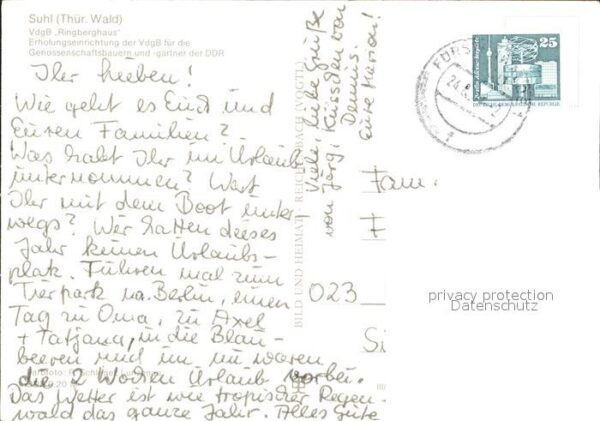 Suhl (Thür. Wald)
VdgB "Ringberghaus"
Erholungseinrichtung der VdgB für die
Genossenschaftsbauern und -gärtner der DDR
Ihr Lieben!
Wie geht es Euch und
Euren Familien?
Was habt Ihr im Urlaub
unternommen? Wart
Ihr mit dem Boot unter
wegs? Wir hatten dieses
Jahr keinen Urlaubs-
platz. Fuhren mal zum
Tierpark na. Berlin, einen
Tag zu Oma, zu Axel
+ Tatjana, in die Blau-
beeren und im nu waren
die 2 Wochen Urlaub vorbei.
Das Wetter ist wie tropischer Regen-
wald das ganze Jahr. Alles Gute
Viele, liebe Grüße
von Jörg, Küsschen von
Dennis.
Eure Marion!
BILD UND HEIMAT REICHENBACH (VOGTL)
25
DEUTSCHE DEMOKRATISCHE REPUBLIK
FÜRST
24
Fam.
023
privacy protection
Datenschutz